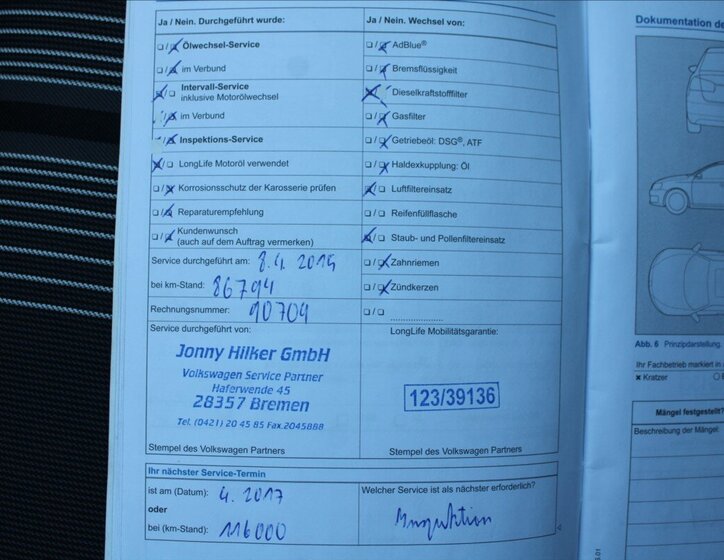 Ja / Nein. Durchgeführt wurde:
Ja / Nein. Wechsel von:
Ölwechsel-Service
AdBlue®
im Verbund
Bremsflüssigkeit
Intervall-Service
inklusive Motorölwechsel
Dieselkraftstofffilter
im Verbund
Gasfilter
Inspektions-Service
Getriebeöl: DSG®, ATF
LongLife Motoröl verwendet
Haldexkupplung: Öl
Korrosionsschutz der Karosserie prüfen
Luftfiltereinsatz
Reparaturempfehlung
Reifenfüllflasche
Kundenwunsch
(auch auf dem Auftrag vermerken)
Staub- und Pollenfiltereinsatz
Service durchgeführt am: 8.4. 2015
Zahnriemen
bei km-Stand: 86794
Zündkerzen
Rechnungsnummer: 90704
Service durchgeführt von:
LongLife Mobilitätsgarantie:
Jonny Hilker GmbH
Volkswagen Service Partner
Haferwende 45
28357 Bremen
Tel. (0421) 20 45 85 Fax.2045888
123/39136
Stempel des Volkswagen Partners
Stempel des Volkswagen Partners
Ihr nächster Service-Termin
ist am (Datum): 4. 2017
Welcher Service ist als nächster erforderlich?
oder
bei (km-Stand): 116000
Inspektion
Dokumentation de
Abb. 6 Prinzipdarstellung.
Ihr Fachbetrieb markiert in
× Kratzer
Mängel festgestellt?
Beschreibung der Mängel: